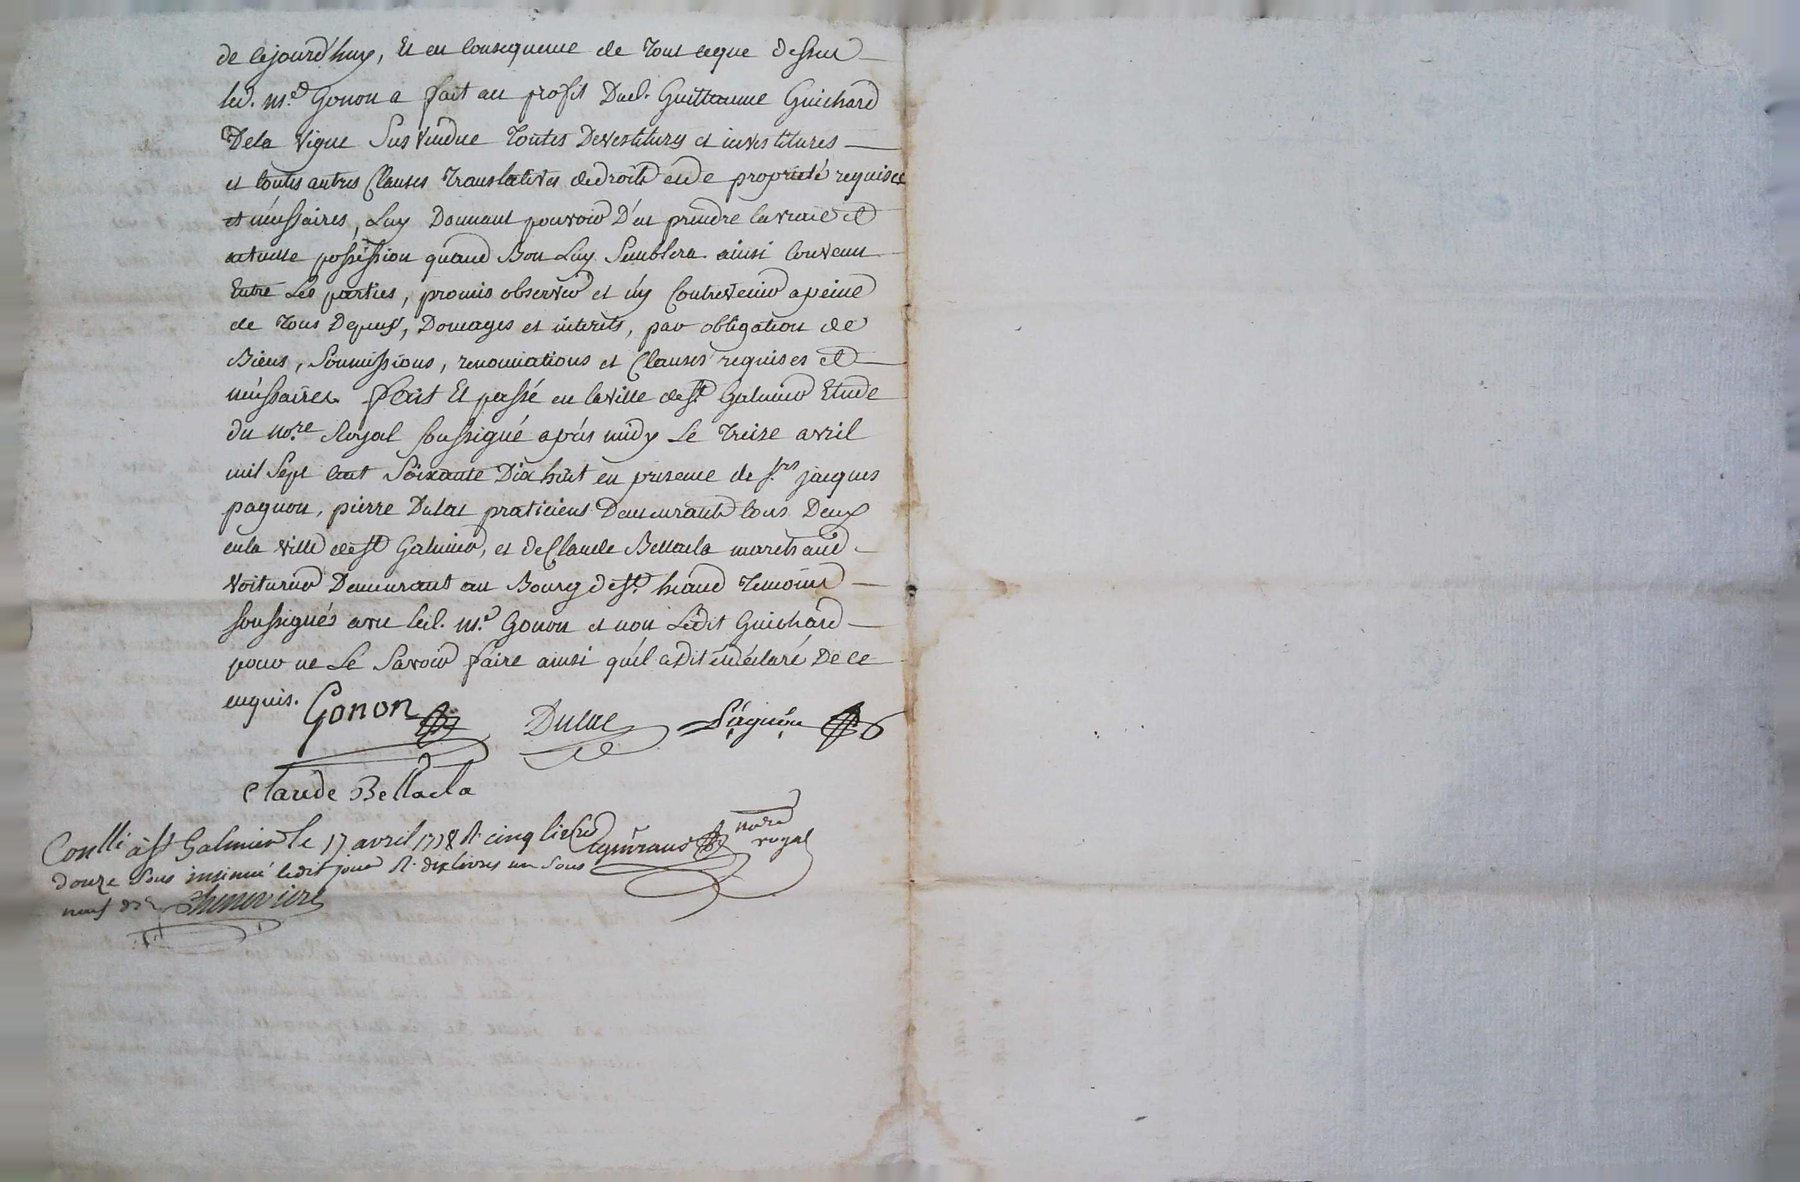 de cejourd'huy, Et en consequence de Tout ceque dessus
led. m.d Gonon a fait au profit Dud. Guillaume Guichard
Dela vigne Susvendue Toutes Devestitures et investitures
et toutes autres Clauses Translatives dedroits et de propriété requises
et nécessaires, Luy Donnant pouvoir D'en prendre la vraie et
actuelle possession quand Bon Luy Semblera. ainsi Convenu
Entre Les parties, promis observer et n'y Contrevenir apeine
de Tous Depens, Domages et interets, par obligation de
Biens, Soumissions, renonciations et Clauses requises et
nécessaires. fait Et passé en la ville de St. Galmier Etude
du no.re Royal soussigné après midy Le Treize avril
mil Sept cent Soixante Dix huit en presence de s.rs jacques
pagnon, pierre Dulac praticiens Demeurants tous Deux
en la ville de St Galmier, et de Claude Bellacla marchand
voiturier Demeurant au Bourg de St. heand Temoins
soussignés avec led. m.d Gonon et non Ledit Guichard
pour ne Le Savoir faire ainsi qu'il a dit et déclaré De ce
enquis. Gonon Dulac Pagnon
Claude Bellacla
Conllé à St Galmier le 17 avril 1778 R. cinq livres
douze Sous insinué ledit jour R. dix livres un Sous
neuf d. no.re royal